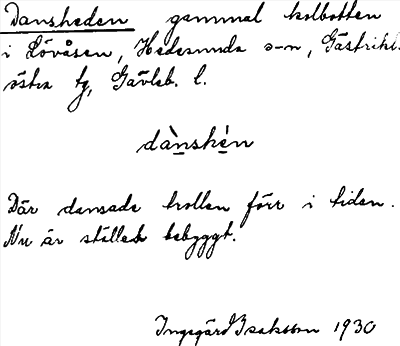 Dansheden gammal kolbotten
i Lövåsen, Hedesunda s-n, Gästrikl.
östra tg, Gävleb. l.
dànskén
Där dansade trollen förr i tiden.
Nu är stället bebyggt.
Ingegärd Isaksson 1930